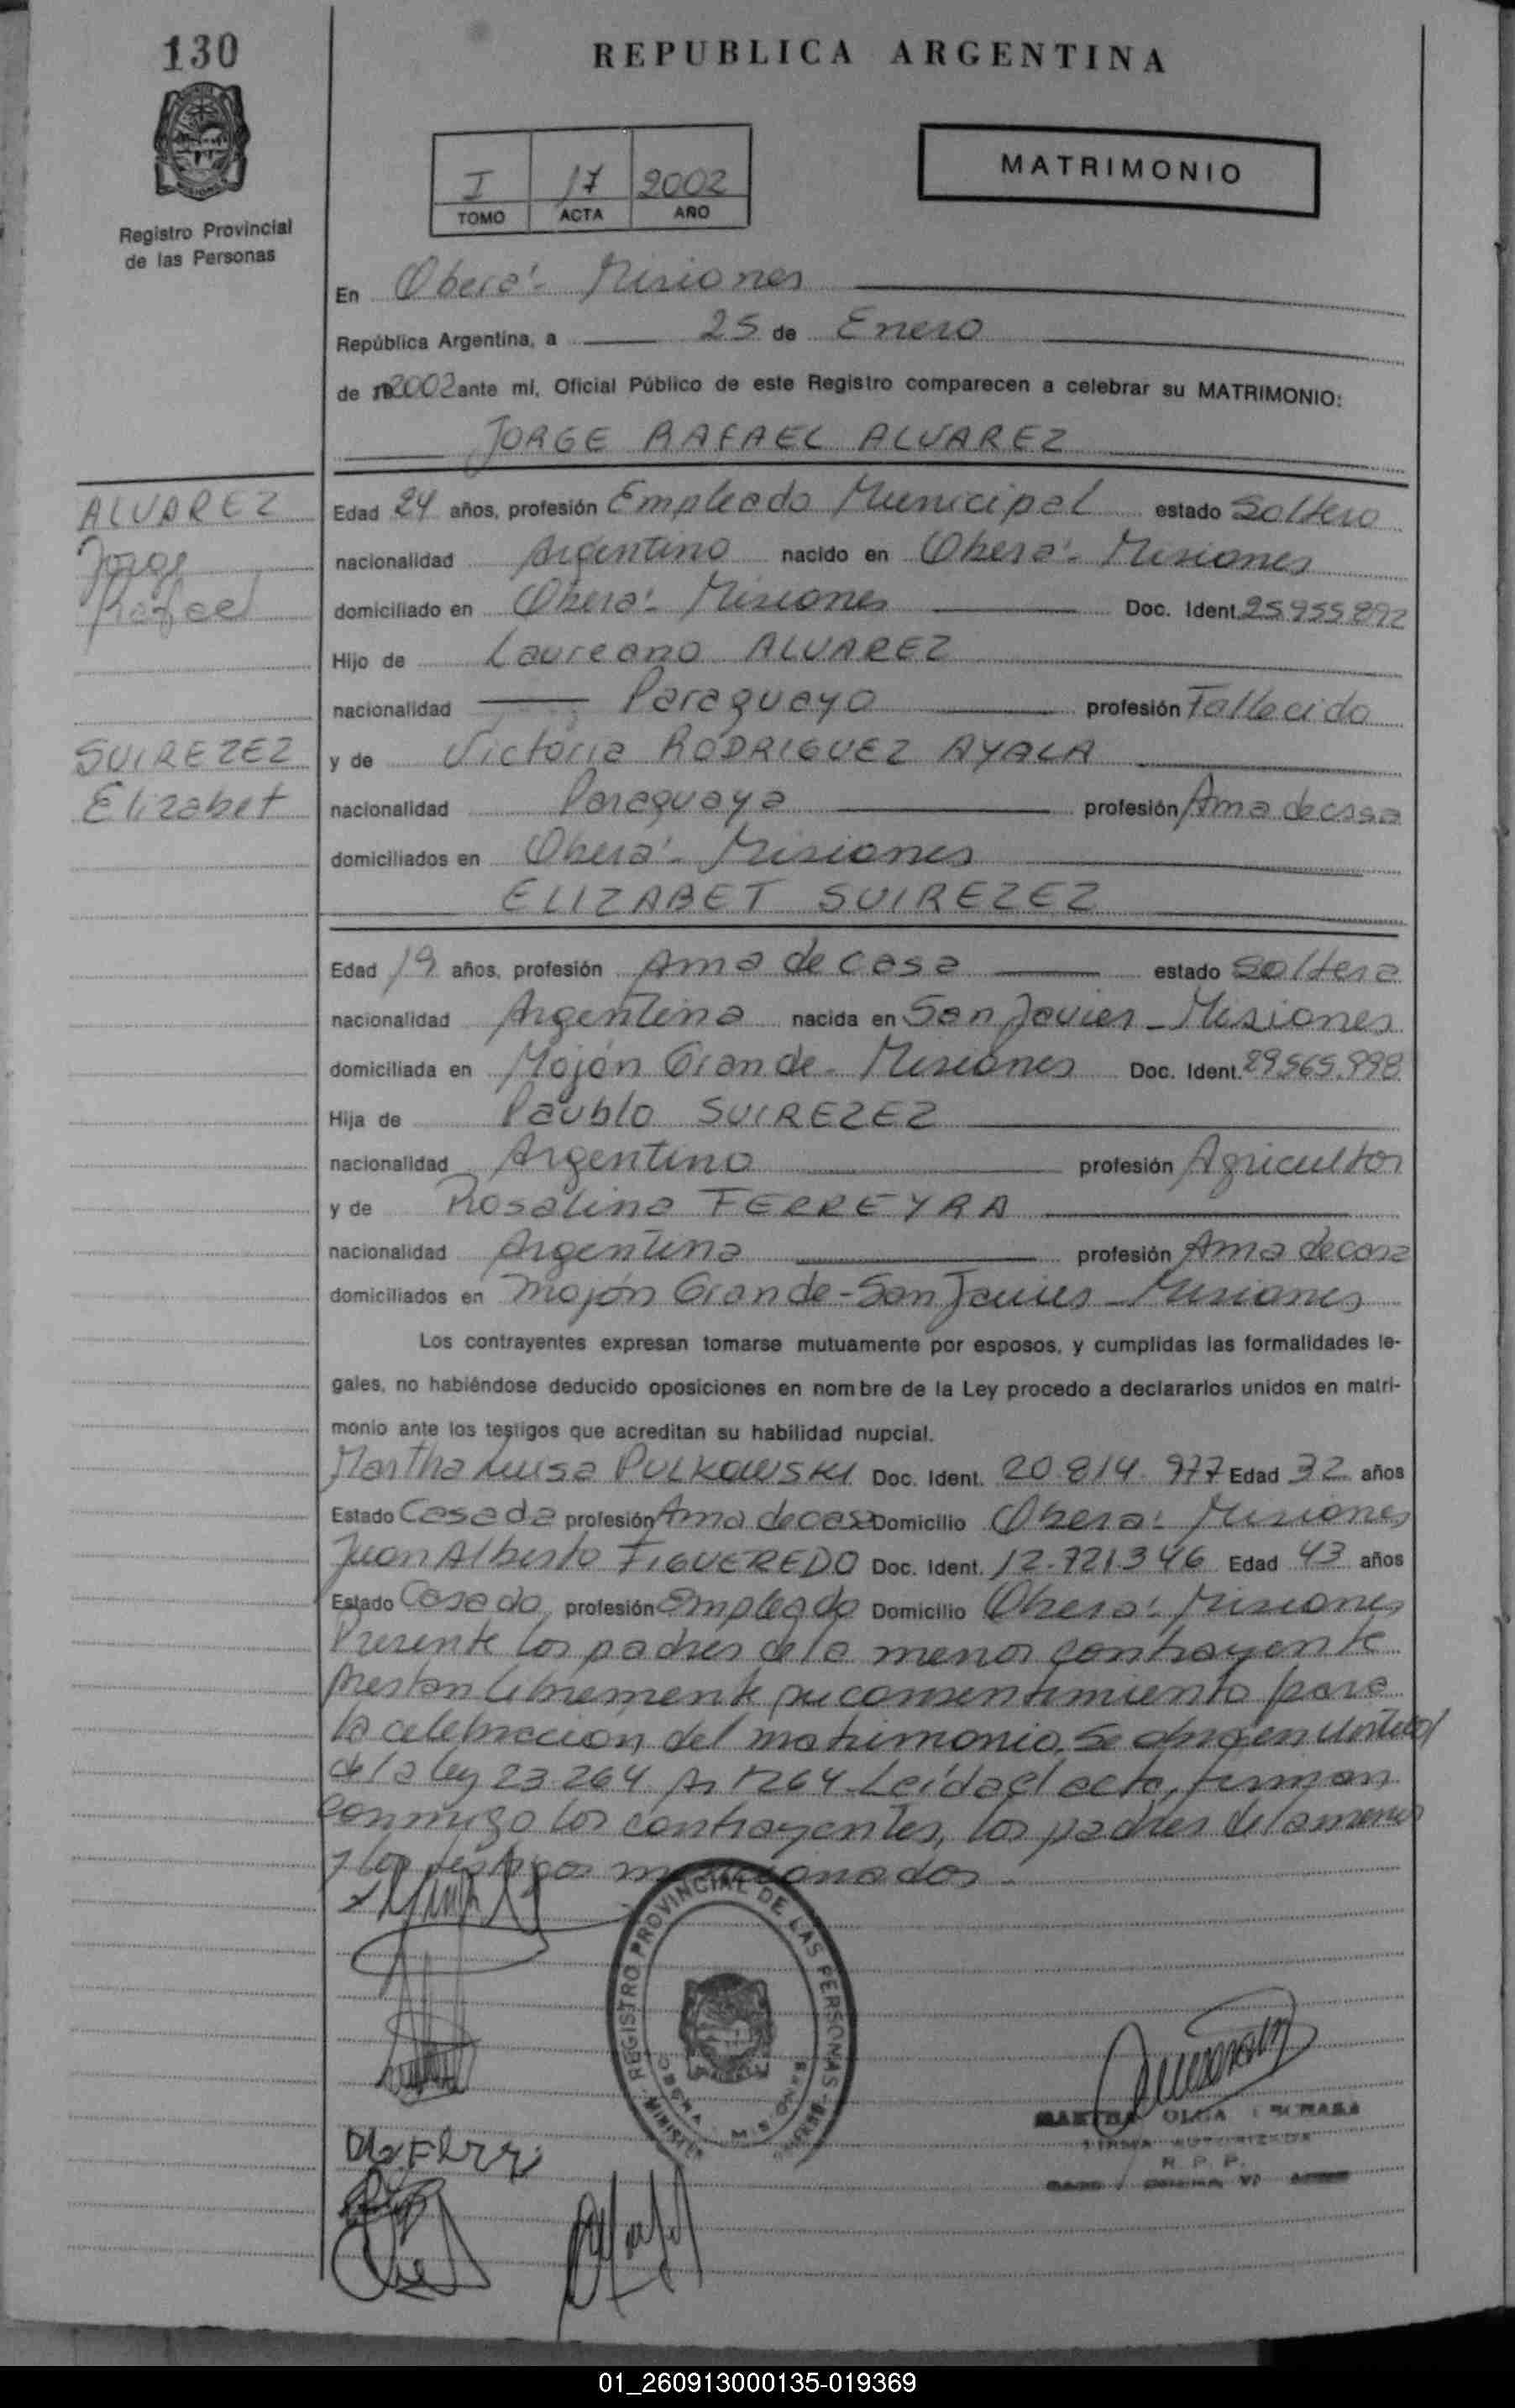 130
REPUBLICA ARGENTINA
Registro Provincial
de las Personas
I 17 2002
TOMO ACTA AÑO
MATRIMONIO
En Oberá - Misiones
República Argentina, a 25 de Enero
de 19 2002 ante mí, Oficial Público de este Registro comparecen a celebrar su MATRIMONIO:
JORGE RAFAEL ALVAREZ
ALVAREZ
Jorge
Rafael
Edad 24 años, profesión Empleado Municipal estado Soltero
nacionalidad Argentino nacido en Oberá - Misiones
domiciliado en Oberá - Misiones Doc. Ident. 25.955.892
Hijo de Laureano ALVAREZ
nacionalidad Paraguayo profesión Fallecido
SUIREZEZ
Elizabet
y de Victoria RODRIGUEZ AYALA
nacionalidad Paraguaya profesión Ama de casa
domiciliados en Oberá - Misiones
ELIZABET SUIREZEZ
Edad 19 años, profesión Ama de casa estado Soltera
nacionalidad Argentina nacida en San Javier - Misiones
domiciliada en Mojón Grande - Misiones Doc. Ident. 29.565.998
Hija de Paublo SUIREZEZ
nacionalidad Argentino profesión Agricultor
y de Rosalina FERREYRA
nacionalidad Argentina profesión Ama de casa
domiciliados en Mojón Grande - San Javier - Misiones
Los contrayentes expresan tomarse mutuamente por esposos, y cumplidas las formalidades le-
gales, no habiéndose deducido oposiciones en nombre de la Ley procedo a declararlos unidos en matri-
monio ante los testigos que acreditan su habilidad nupcial.
Martha Luisa PULKOWSKI Doc. Ident. 20.814.977 Edad 32 años
Estado Casada profesión Ama de casa Domicilio Oberá - Misiones
Juan Alberto FIGUEREDO Doc. Ident. 12.721.346 Edad 43 años
Estado Casado profesión Empleado Domicilio Oberá - Misiones
Presente los padres de la menor contrayente
prestan libremente su consentimiento para
la celebracion del matrimonio. Se
de la ley 23.264 Leida el acta, firman
conmigo los contrayentes, los padres de la menor
y los testigos mencionados.
REGISTRO PROVINCIAL DE LAS PERSONAS
OBERA - MISIONES
MARTHA OLGA
FIRMA AUTORIZADA
R. P. P.
01_260913000135-019369